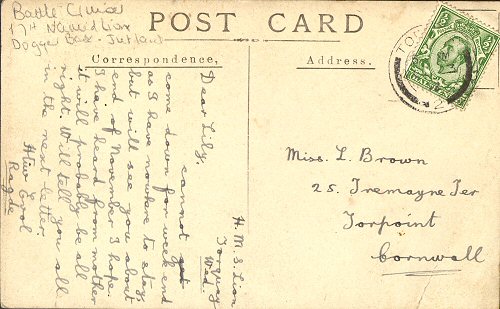 Battle Cruiser
17th New'd Lion
Dogger Bank - Jutland
POST CARD
Correspondence,
Address.
TOR
H.M.S. Lion
Torquay
Wed.
Dear Lily,
cannot get
come down for week end
as I have nowhere to stay,
but will see you about
end of November I hope.
I have heard from mother
it will probably be all
right. Will tell you all
in the next letter.
Miss. L. Brown
25. Tremayne Ter
Torpoint
Cornwall